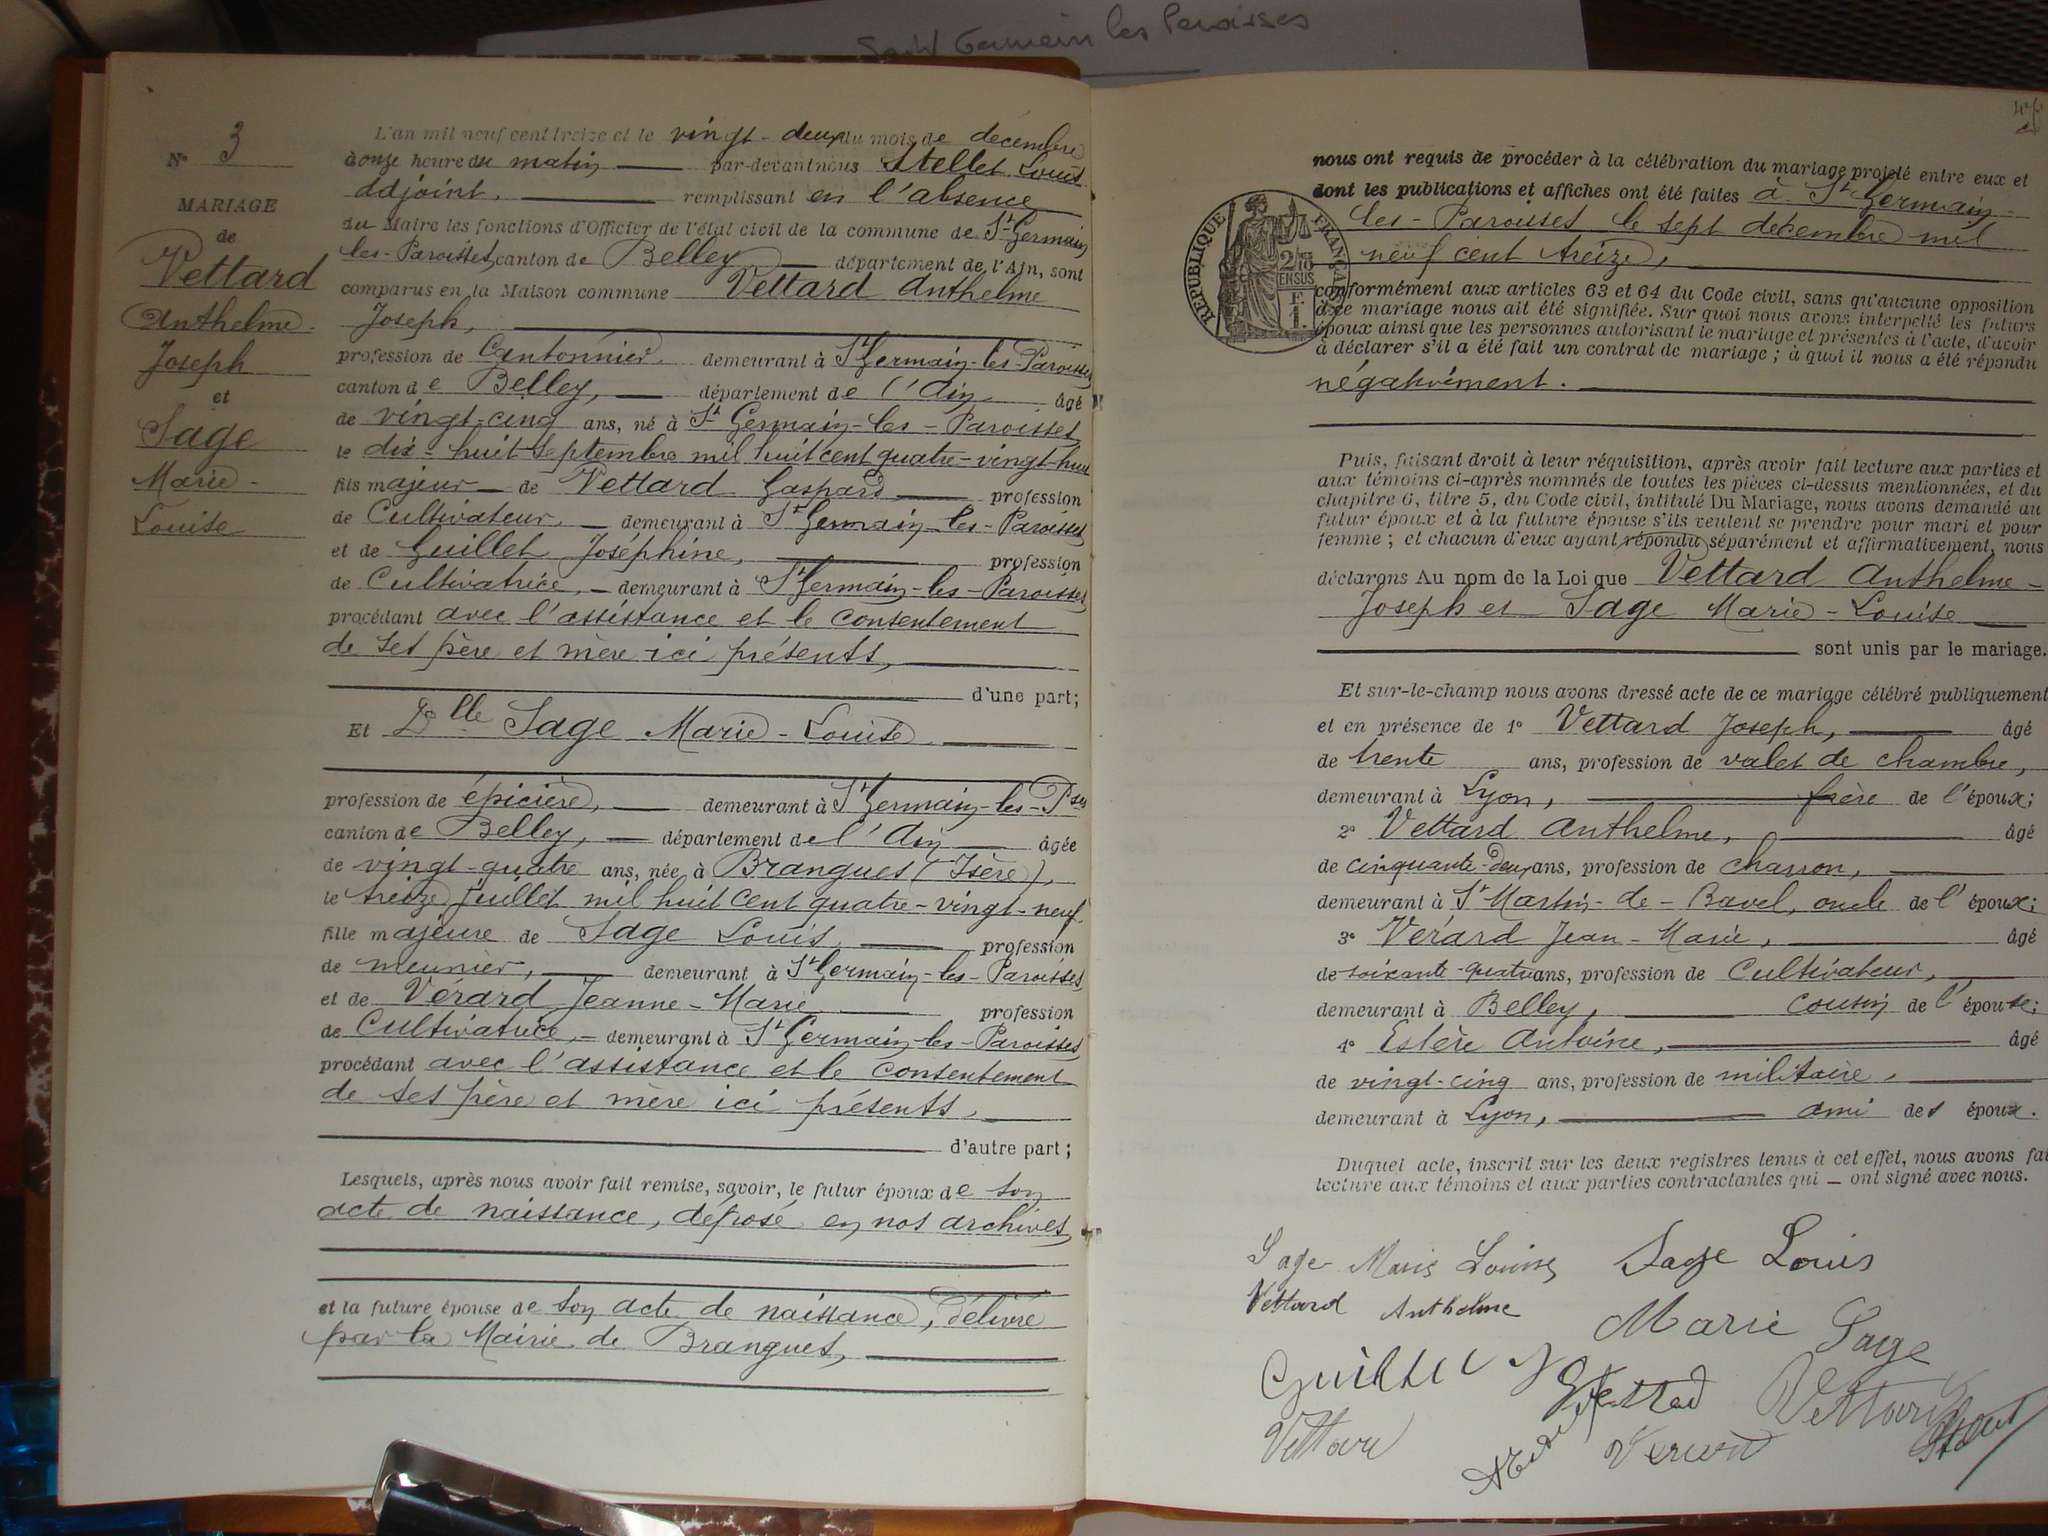 Saint Germain les Paroisses
N° 3
MARIAGE
de
Vettard
Anthelme
Joseph
et
Sage
Marie
Louise
L'an mil neuf cent treize et le vingt-deux du mois de décembre
à onze heure du matin par-devant nous Stellet Louis
Adjoint, remplissant en l'absence
du Maire les fonctions d'Officier de l'état civil de la commune de St Germain
les-Paroisses, canton de Belley département de l'Ain, sont
comparus en la Maison commune Vettard Anthelme
Joseph,
profession de Cantonnier demeurant à St Germain-les-Paroisses
canton de Belley, département de l'Ain âgé
de vingt-cinq ans, né à St Germain-les-Paroisses
le dix-huit septembre mil huit cent quatre-vingt-huit
fils majeur de Vettard Gaspard profession
de Cultivateur demeurant à St Germain-les-Paroisses
et de Guillet Joséphine, profession
de Cultivatrice, demeurant à St Germain-les-Paroisses
procédant avec l'assistance et le consentement
de ses père et mère ici présents,
d'une part;
Et Dlle Sage Marie-Louise
profession de épicière, demeurant à St Germain-les-Pses
canton de Belley, département de l'Ain âgée
de vingt-quatre ans, née à Brangues (Isère),
le treize juillet mil huit cent quatre-vingt-neuf
fille majeure de Sage Louis, profession
de meunier, demeurant à St Germain-les-Paroisses
et de Vérard Jeanne-Marie profession
de Cultivatrice, demeurant à St Germain-les-Paroisses
procédant avec l'assistance et le consentement
de ses père et mère ici présents,
d'autre part;
Lesquels, après nous avoir fait remise, savoir, le futur époux de son
acte de naissance, déposé en nos archives
et la future épouse de son acte de naissance, délivré
par la Mairie de Brangues,
nous ont requis de procéder à la célébration du mariage projeté entre eux et
dont les publications et affiches ont été faites à St Germain-
les-Paroisses le sept décembre mil
neuf cent treize,
RÉPUBLIQUE FRANÇAISE
2/10 EN SUS
1 F.
conformément aux articles 63 et 64 du Code civil, sans qu'aucune opposition
à ce mariage nous ait été signifiée. Sur quoi nous avons interpellé les futurs
époux ainsi que les personnes autorisant le mariage et présentes à l'acte, d'avoir
à déclarer s'il a été fait un contrat de mariage; à quoi il nous a été répondu
négativement.
Puis, faisant droit à leur réquisition, après avoir fait lecture aux parties et
aux témoins ci-après nommés de toutes les pièces ci-dessus mentionnées, et du
chapitre 6, titre 5, du Code civil, intitulé Du Mariage, nous avons demandé au
futur époux et à la future épouse s'ils veulent se prendre pour mari et pour
femme; et chacun d'eux ayant répondu séparément et affirmativement, nous
déclarons Au nom de la Loi que Vettard Anthelme-
Joseph et Sage Marie-Louise
sont unis par le mariage.
Et sur-le-champ nous avons dressé acte de ce mariage célébré publiquement
et en présence de 1° Vettard Joseph, âgé
de trente ans, profession de valet de chambre,
demeurant à Lyon, frère de l'époux;
2° Vettard Anthelme, âgé
de cinquante-deux ans, profession de charron,
demeurant à St Martin-de-Bavel, oncle de l'époux;
3° Vérard Jean-Marie, âgé
de soixante-quatre ans, profession de Cultivateur,
demeurant à Belley, cousin de l'épouse;
4° Estère Antoine, âgé
de vingt-cinq ans, profession de militaire,
demeurant à Lyon, ami des époux.
Duquel acte, inscrit sur les deux registres tenus à cet effet, nous avons fait
lecture aux témoins et aux parties contractantes qui ont signé avec nous.
Sage Marie Louise Sage Louis
Vettard Anthelme
Marie Sage
Vettard